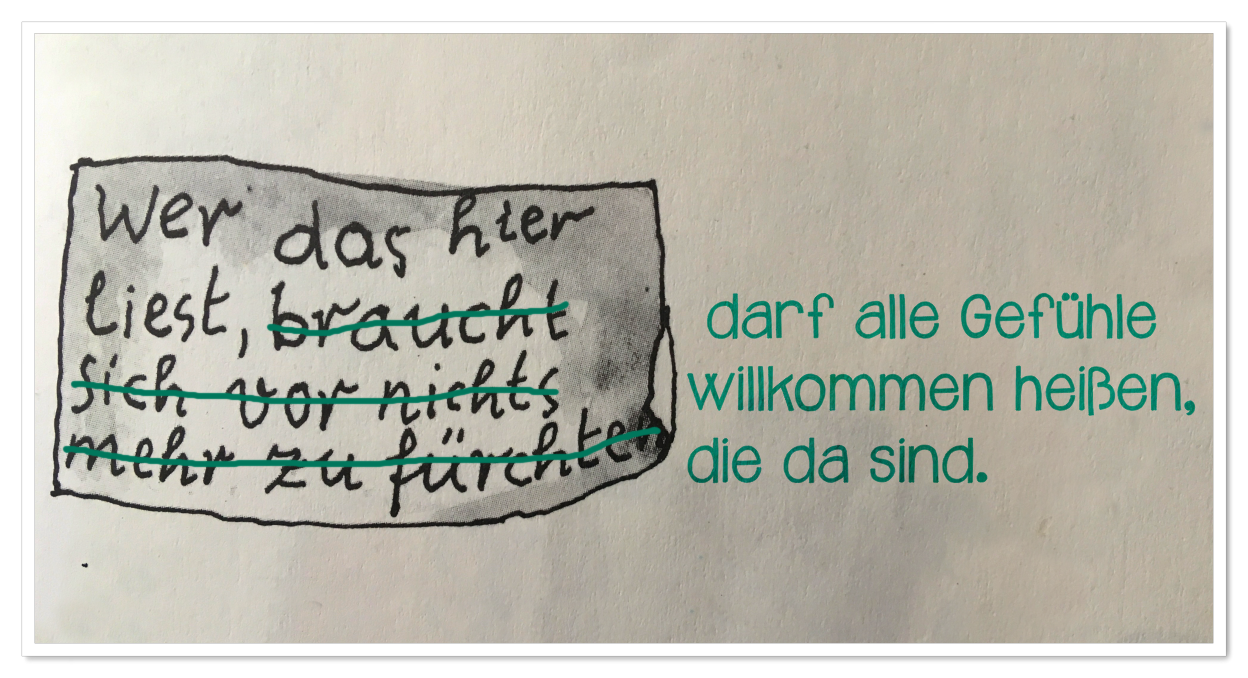 Wer das hier
liest, braucht
sich vor nichts
mehr zu fürchten
darf alle Gefühle
willkommen heißen,
die da sind.